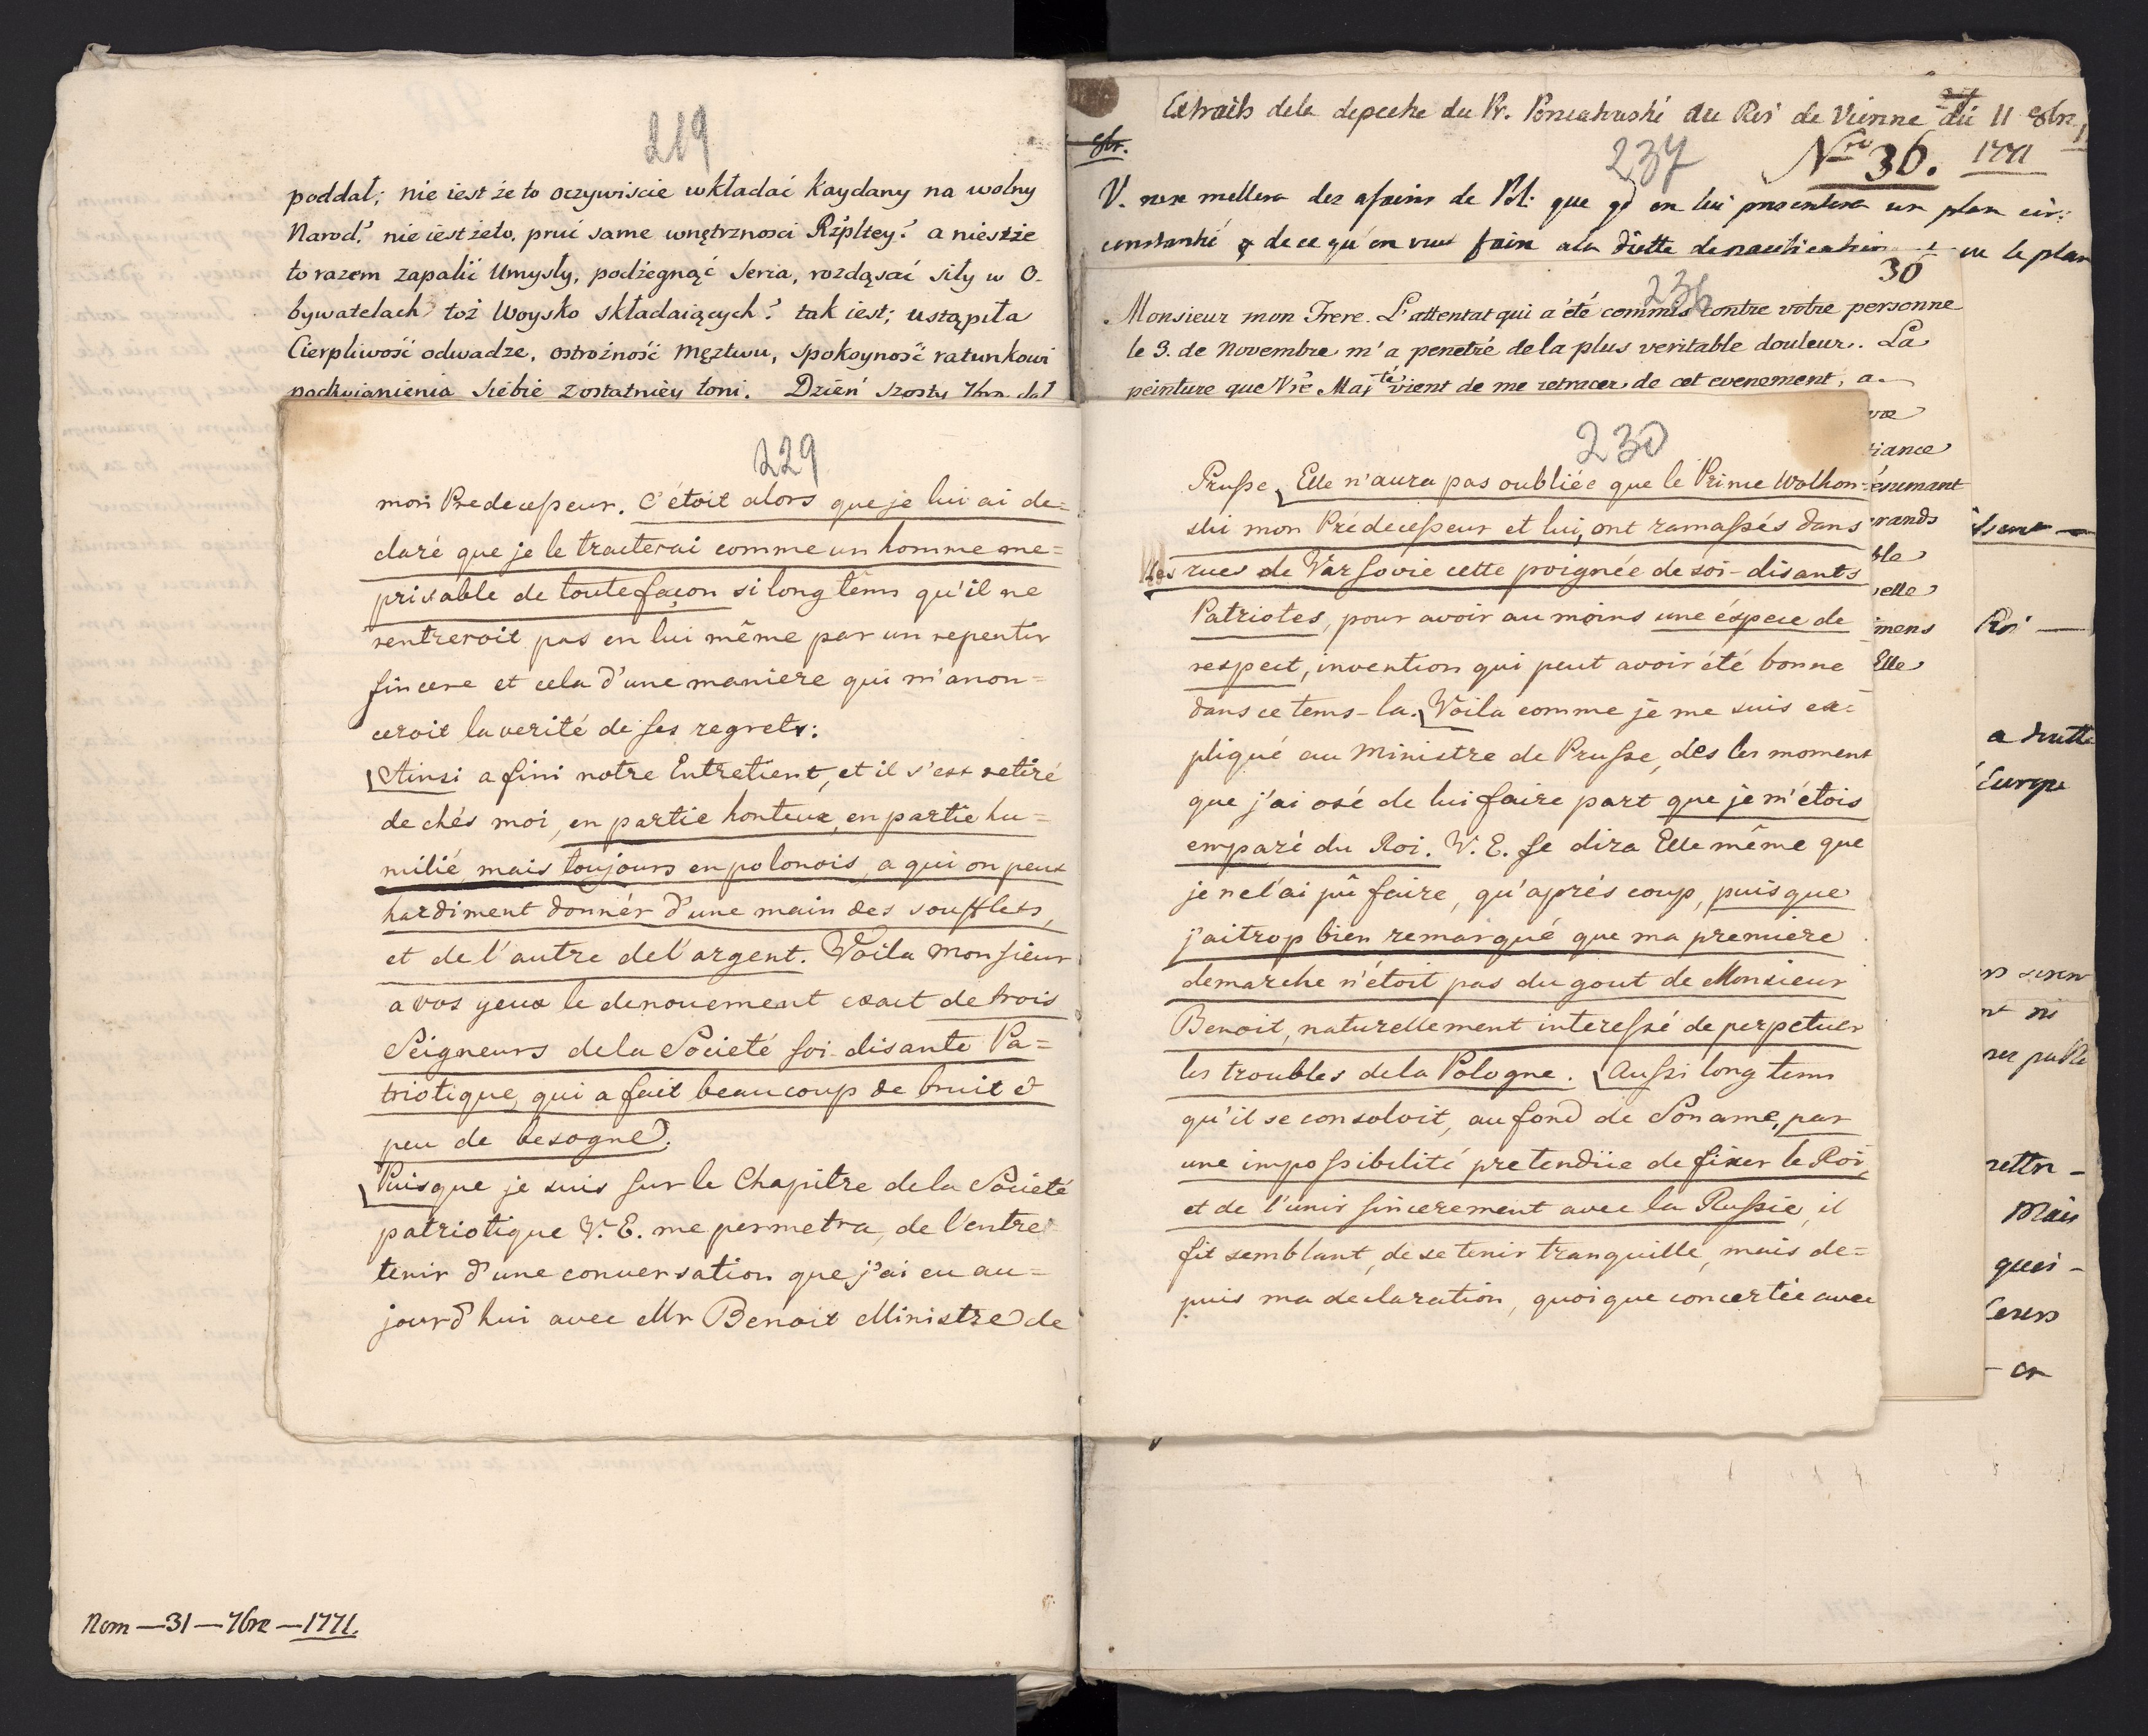 219
poddał; nie iest że to oczywiscie wkładać kaydany na wolny
Narod? nie iest żeto, pruć same wnętrznosci Rżpltey? a niestże
to razem zapalić Umysły, podżegnąć Serca, rozdąsać siły w O-
bywatelach toż Woysko składaiących? tak iest; ustąpiła
Cierpliwość odwadze, ostrożność męztwu, spokoyność ratunkowi
podzwignienia siebie z ostatnièy toni. Dzień szosty 7bra dał
229
mon Predecesseur. C'étoit alors que je lui ai de=
claré que je le traiterai comme un homme me=
prisable de toute façon si long têms qu'il ne
rentreroit pas en lui même par un repentir
sincere et cela d'une maniere qui m'anon=
ceroit la verité de ses regrets:
Ainsi a fini notre Entretient, et il s'est retiré
de chés moi, en partie honteux, en partie hu=
milié, mais toujours en polonois, a qui on peut
hardiment donnér d'une main des soufflets,
et de l'autre de l'argent. Voila Monsieur
a vos yeux le denouement exact de trois
Seigneurs de la Societé soi-disante Pa=
triotique, qui a fait beaucoup de bruit &
peu de besogne.
Puisque je suis sur le Chapitre de la Societé
patriotique V. E. me permetra, de l'entre
tenir d'une conversation que j'ai eu au=
jourd'hui avec Mr Benoit Ministre de
Nom — 31 — 7bre — 1771.
Extraits de la depeche du Pr. Poniatowski au Roi de Vienne du 11 8bre
8br.
237
Nro 36.
1771
V. ne se mellera des afaires de Pol: que qd on lui presentera un plan cir:
constantié & de ce qu'on veut faire a la diette de pacification
ou le plan
30
236
Monsieur mon Frere. L'attentat qui a été commis contre votre personne
le 3. de Novembre m'a penetré de la plus veritable douleur. La
peinture que Vre Majté vient de me retracer de cet evenement, a
230
Prusse, Elle n'aura pas oubliée que le Prince Wolkon-
ski mon Prédecesseur et lui, ont ramassés dans
les rues de Varsovie cette poignée de soi-disants
Patriotes, pour avoir au moins une éspece de
respect, invention qui peut avoir été bonne
dans ce tems-la. Voila comme je me suis ex=
pliqué au Ministre de Prusse, des les moment
que j'ai osé de lui faire part que je m'étois
emparé du Roi. V. E. se dira Elle même que
je ne l'ai pû faire, qu'aprés coup, puisque
j'ai trop bien remarqué que ma premiere
demarche n'étoit pas du gout de Monsieur
Benoit, naturellement interessé de perpetuer
les troubles de la Pologne. Aussi long tems
qu'il se consoloit, au fond de Son ame, par
une impossibilité pretendüe de fixer le Roi,
et de l'unir sincerement avec la Russie, il
fit semblant, de se tenir tranquille, mais de=
puis ma declaration, quoique concertée avec
iance
esumant
rands
ble
elle
mens
Elle
Roi —
Europe
Mais
quoi -